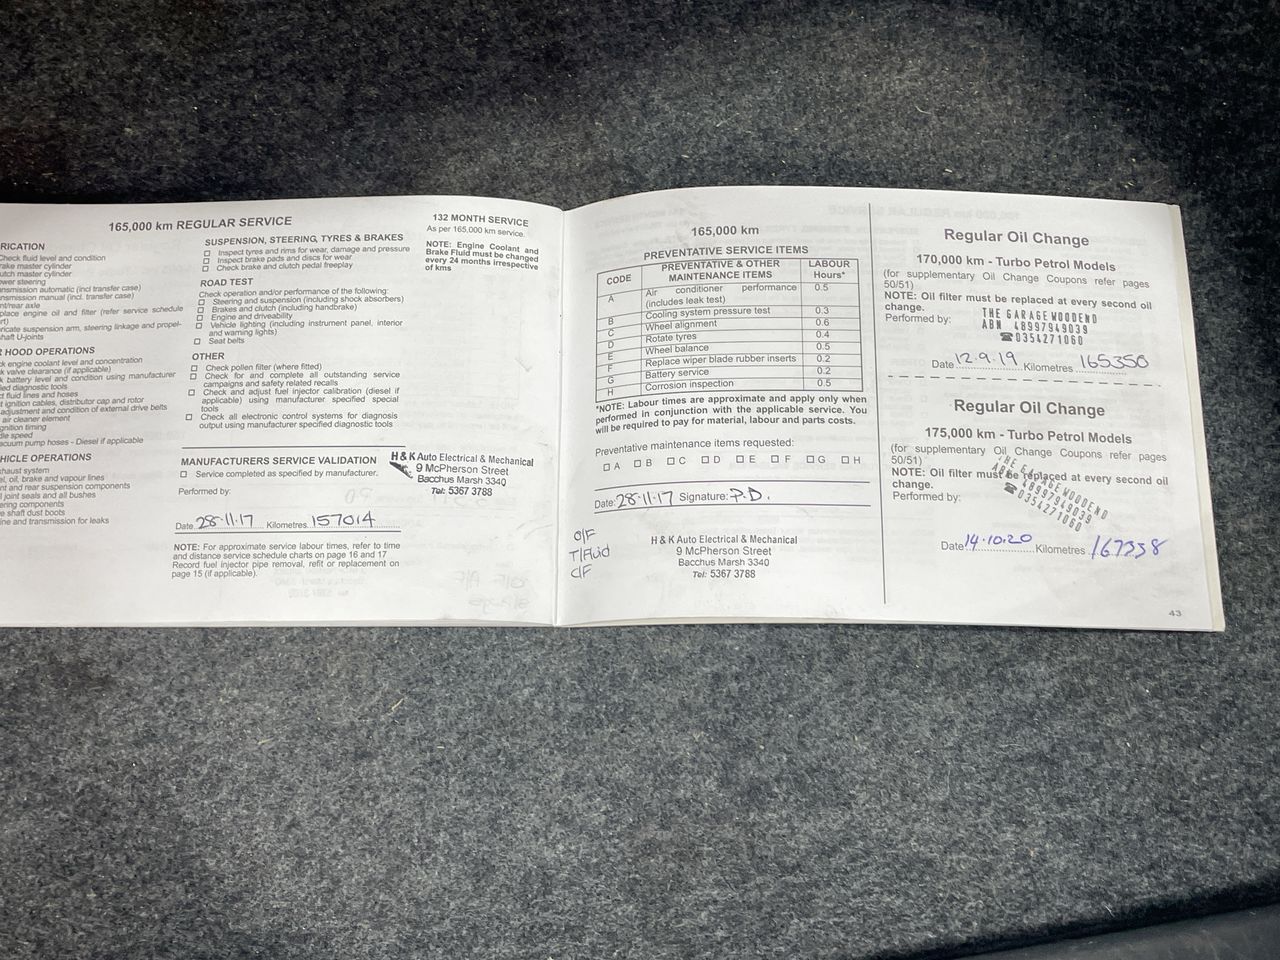 165,000 km REGULAR SERVICE
RICATION
Check fluid level and condition
rake master cylinder
utch master cylinder
wer steering
nsmission automatic (incl transfer case)
nsmission manual (incl. transfer case)
nt/rear axle
place engine oil and filter (refer service schedule
rt)
ricate suspension arm, steering linkage and propel-
haft U-joints
HOOD OPERATIONS
ck engine coolant level and concentration
k valve clearance (if applicable)
k battery level and condition using manufacturer
ied diagnostic tools
d fluid lines and hoses
t ignition cables, distributor cap and rotor
adjustment and condition of external drive belts
air cleaner element
gnition timing
dle speed
acuum pump hoses - Diesel if applicable
HICLE OPERATIONS
xhaust system
el, oil, brake and vapour lines
nt and rear suspension components
l joint seals and all bushes
ering components
e shaft dust boots
ine and transmission for leaks
SUSPENSION, STEERING, TYRES & BRAKES
☐ Inspect tyres and rims for wear, damage and pressure
☐ Inspect brake pads and discs for wear
☐ Check brake and clutch pedal freeplay
ROAD TEST
Check operation and/or performance of the following:
☐ Steering and suspension (including shock absorbers)
☐ Brakes and clutch (including handbrake)
☐ Engine and driveability
☐ Vehicle lighting (including instrument panel, interior
and warning lights)
☐ Seat belts
OTHER
☐ Check pollen filter (where fitted)
☐ Check for and complete all outstanding service
campaigns and safety related recalls
☐ Check and adjust fuel injector calibration (diesel if
applicable) using manufacturer specified special
tools
☐ Check all electronic control systems for diagnosis
output using manufacturer specified diagnostic tools
132 MONTH SERVICE
As per 165,000 km service.
NOTE: Engine Coolant and
Brake Fluid must be changed
every 24 months irrespective
of kms
MANUFACTURERS SERVICE VALIDATION
☐ Service completed as specified by manufacturer.
Performed by:
H & K Auto Electrical & Mechanical
9 McPherson Street
Bacchus Marsh 3340
Tel: 5367 3788
Date 28-11-17 Kilometres 157014
NOTE: For approximate service labour times, refer to time
and distance service schedule charts on page 16 and 17
Record fuel injector pipe removal, refit or replacement on
page 15 (if applicable).
165,000 km
PREVENTATIVE SERVICE ITEMS
CODE PREVENTATIVE & OTHER MAINTENANCE ITEMS LABOUR Hours*
A Air conditioner performance (includes leak test) 0.5
B Cooling system pressure test 0.3
C Wheel alignment 0.6
D Rotate tyres 0.4
E Wheel balance 0.5
F Replace wiper blade rubber inserts 0.2
G Battery service 0.2
H Corrosion inspection 0.5
*NOTE: Labour times are approximate and apply only when
performed in conjunction with the applicable service. You
will be required to pay for material, labour and parts costs.
Preventative maintenance items requested:
☐ A ☐ B ☐ C ☐ D ☐ E ☐ F ☐ G ☐ H
Date: 28-11-17 Signature: P.D.
O/F
T/Fluid
C/F
H & K Auto Electrical & Mechanical
9 McPherson Street
Bacchus Marsh 3340
Tel: 5367 3788
Regular Oil Change
170,000 km - Turbo Petrol Models
(for supplementary Oil Change Coupons refer pages
50/51)
NOTE: Oil filter must be replaced at every second oil
change.
Performed by:
THE GARAGE WOODEND
ABN 48997949039
☎0354271060
Date 12.9.19 Kilometres 165350
Regular Oil Change
175,000 km - Turbo Petrol Models
(for supplementary Oil Change Coupons refer pages
50/51)
NOTE: Oil filter must be replaced at every second oil
change.
Performed by:
THE GARAGE WOODEND
ABN 48997949039
☎0354271060
Date 14.10.20 Kilometres 167338
43